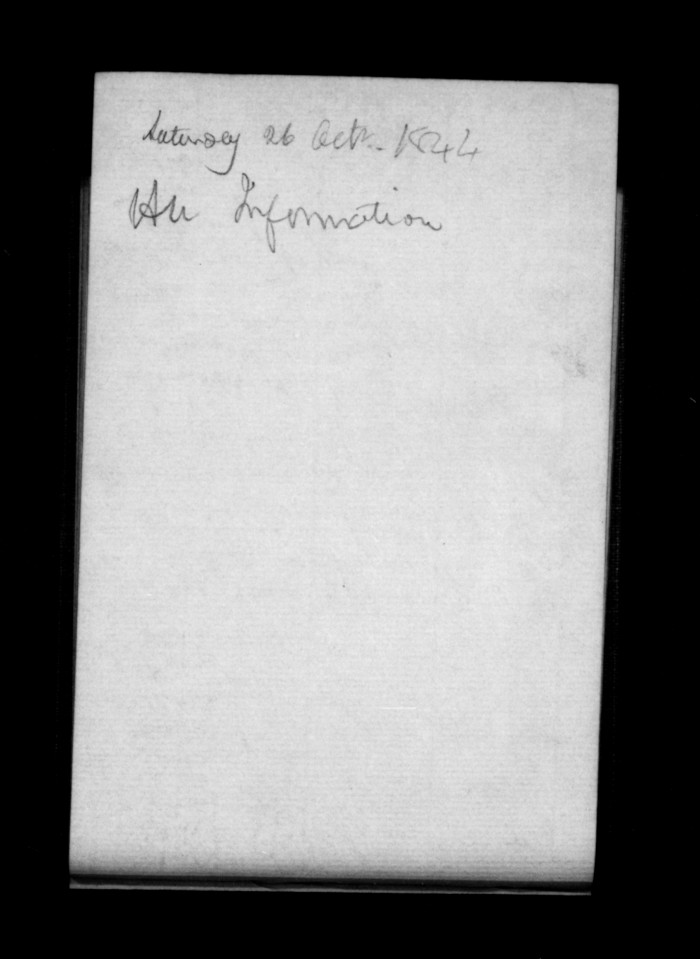 Saturday 26 Octr. 1844
An Information